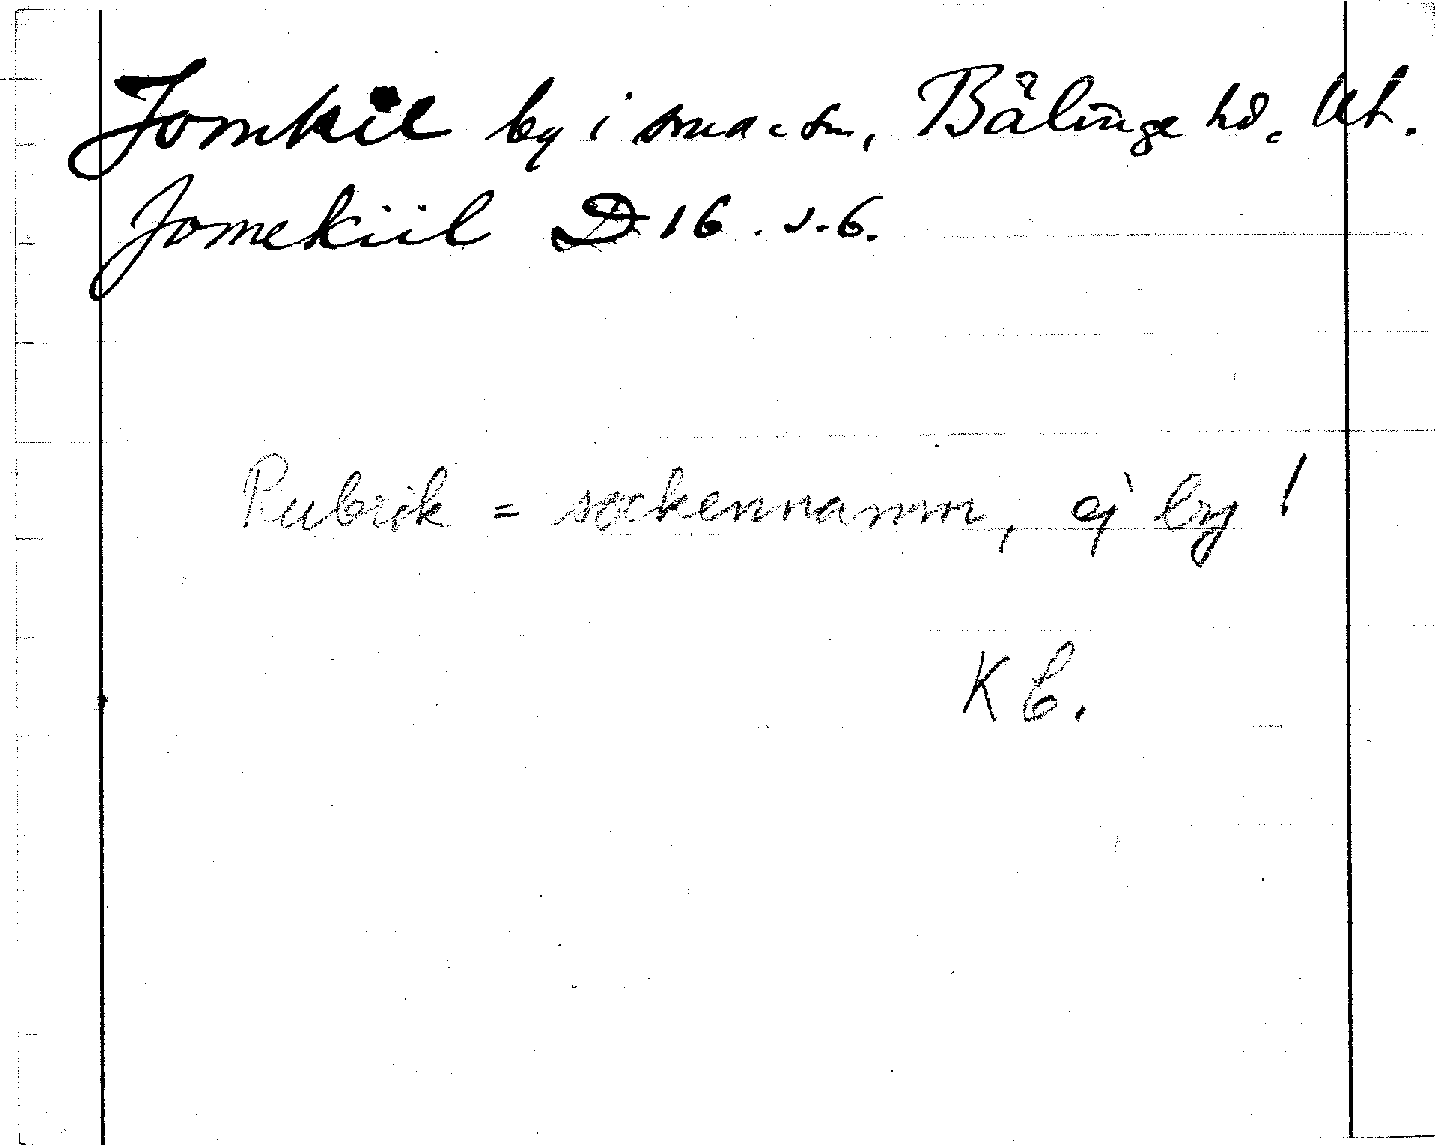 Jomkil by i sma-sn, Bälinge hd. Ul.
Jomekiil D 16. s. 6.
Rubrik = sockennamn, ej by!
KC.